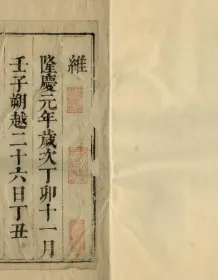 維
隆慶元年歲次丁卯十一月
壬子朔越二十六日丁丑